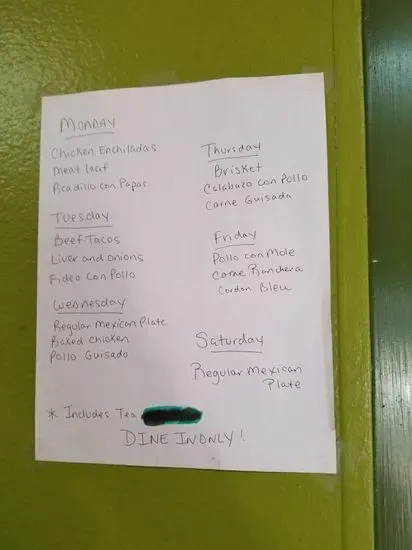 Monday
Chicken Enchiladas
Meat loaf
Picadillo con Papas
Tuesday
Beef Tacos
Liver and onions
Fideo Con Pollo
Wednesday
Regular Mexican Plate
Baked Chicken
Pollo Guisado
Thursday
Brisket
Calabaza con Pollo
Carne Guisada
Friday
Pollo con Mole
Carne Ranchera
Cordon Bleu
Saturday
Regular Mexican
Plate
* Includes Tea
DINE IN ONLY!